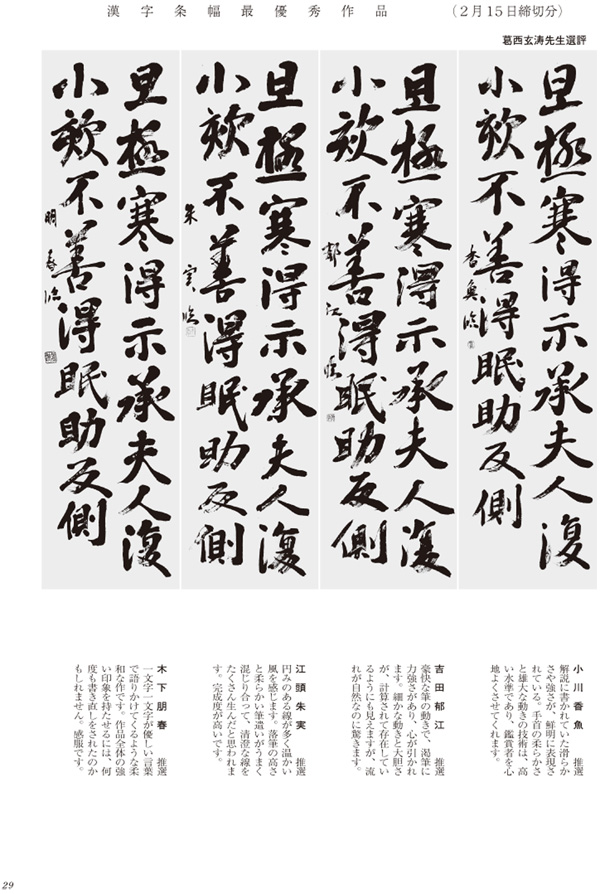 漢字条幅最優秀作品 (2月15日締切分)
葛西玄涛先生選評
旦極寒得示承夫人復
小欬不善得眠助反側
香魚臨
旦極寒得示承夫人復
小欬不善得眠助反側
郁江臨
旦極寒得示承夫人復
小欬不善得眠助反側
朱実臨
旦極寒得示承夫人復
小欬不善得眠助反側
朋春臨
小川香魚 推選
解説に書かれていた滑らか
さや強さが、鮮明に表現さ
れている。手首の柔らかさ
と雄大な動きの技術は、高
い水準であり、鑑賞者を心
地よくさせてくれます。
吉田郁江 推選
豪快な筆の動きで、渇筆に
力強さがあり、心が引かれ
ます。細かな動きと大胆さ
が、計算されて存在してい
るようにも見えますが、流
れが自然なのに驚きます。
江頭朱実 推選
円みのある線が多く温かい
風を感じます。落筆の高さ
と柔らかい筆遣いがうまく
混じり合って、清澄な線を
たくさん生んだと思われま
す。完成度が高いです。
木下朋春 推選
一文字一文字が優しい言葉
で語りかけてくるような柔
和な作です。作品全体の強
い印象を持たせるには、何
度も書き直しをされたのか
もしれません。感服です。
29